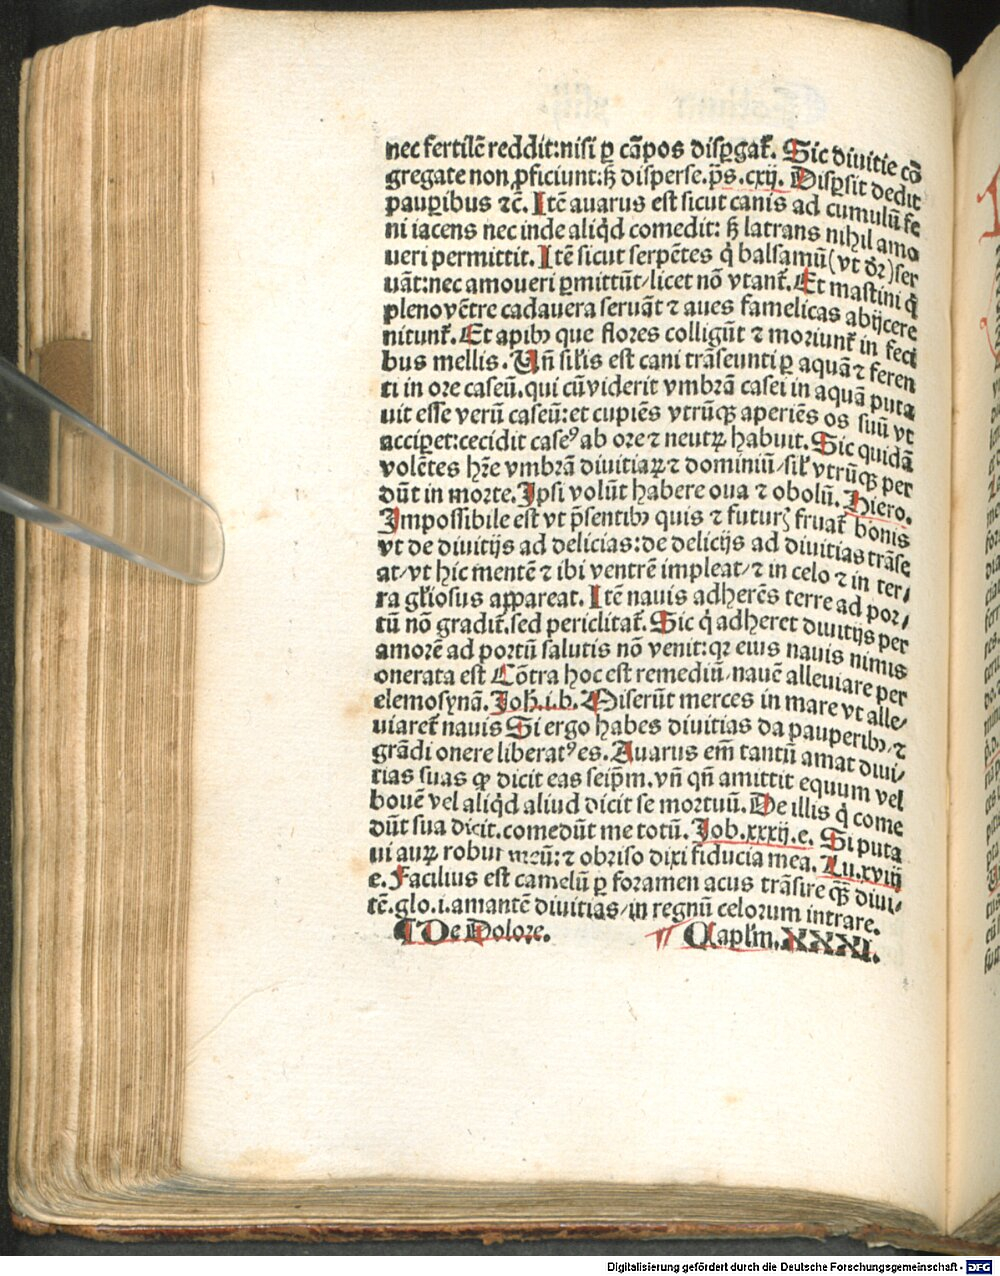 nec fertilē reddit:nisi ꝑ cāpos disꝑgaẗ. Sic diuitie cō
gregate non ꝓficiunt:ß disperse.p̄s.cxij. Disꝑsit dedit
pauꝑibus ⁊c̄. Itē auarus est sicut canis ad cumulū fe
ni iacens nec inde aliq̇d comedit: ß latrans nihil amo
ueri permittit. Itē sicut serpētes q̇ balsamū(vt dr̄)ser
uāt:nec amoueri ꝑmittūt/licet nō vtant̄. Et mastini q̇
pleno vētre cadauera seruāt ⁊ aues famelicas abijcere
nitunt̄. Et apibꝰ que flores colligūt ⁊ moriunt̄ in feci
bus mellis. Vn̄ sil̄is est cani trāseunti ꝑ aquā ⁊ feren
ti in ore caseū.qui cū viderit vmbrā casei in aquā puta
uit esse verū caseū:et cupiēs vtrūqꝫ aperiēs os suū vt
acciꝑet:cecidit caseꝰ ab ore ⁊ neutꝝ habuit. Sic quidā
volētes hr̄e vmbrā diuitiaꝝ ⁊ dominiū/sil̄ vtrūqꝫ per
dūt in morte. Ipsi volūt habere oua ⁊ obolū. Hiero.
Impossibile est vt p̄sentibꝰ quis ⁊ futurꝭ fruat̄ bonis
vt de diuitijs ad delicias:de delicijs ad diuitias trāse
at/vt hic mentē ⁊ ibi ventrē impleat/⁊ in celo ⁊ in ter/
ra gl̄iosus appareat. Itē nauis adherēs terre ad por/
tū nō gradit̄.sed periclitat̄. Sic q̇ adheret diuitijs per
amorē ad portū salutis nō venit:qꝛ eius nauis nimis
onerata est Cōtra hoc est remediū/nauē alleuiare per
elemosynā. Joh̄.i.b. Miserūt merces in mare vt alle/
uiaret̄ nauis Si ergo habes diuitias da pauperibꝰ/⁊
grādi onere liberatꝰ es. Auarus em̄ tantū amat diui/
tias suas ꝙ dicit eas seip̄m.vn̄ qn̄ amittit equum vel
bouē vel aliq̇d aliud dicit se mortuū. De illis q̇ come
dūt sua dicit.comedūt me totū. Job.xxxij.e. Si puta
ui auꝝ robur meū:⁊ obriso dixi fiducia mea. Lu.xviij
e. Facilius est camelū ꝑ foramen acus trāsire qꝫ̄ diui/
tē.glo.i.amantē diuitias/in regnū celorum intrare.
¶ De Dolore. Capl̄m. XXXI.
Digitalisierung gefördert durch die Deutsche Forschungsgemeinschaft - DFG